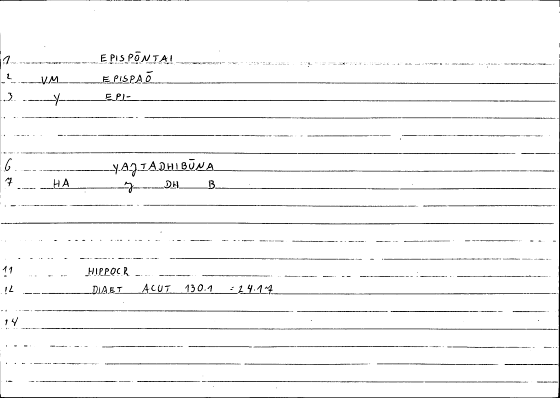 1 EPISPŌNTAI
2 VM EPISPAŌ
3 Y EPI-
6 YAJTADHIBŪNA
7 HA J DH B
11 HIPPOCR
12 DIAET ACUT 130.1 = 24.17
14